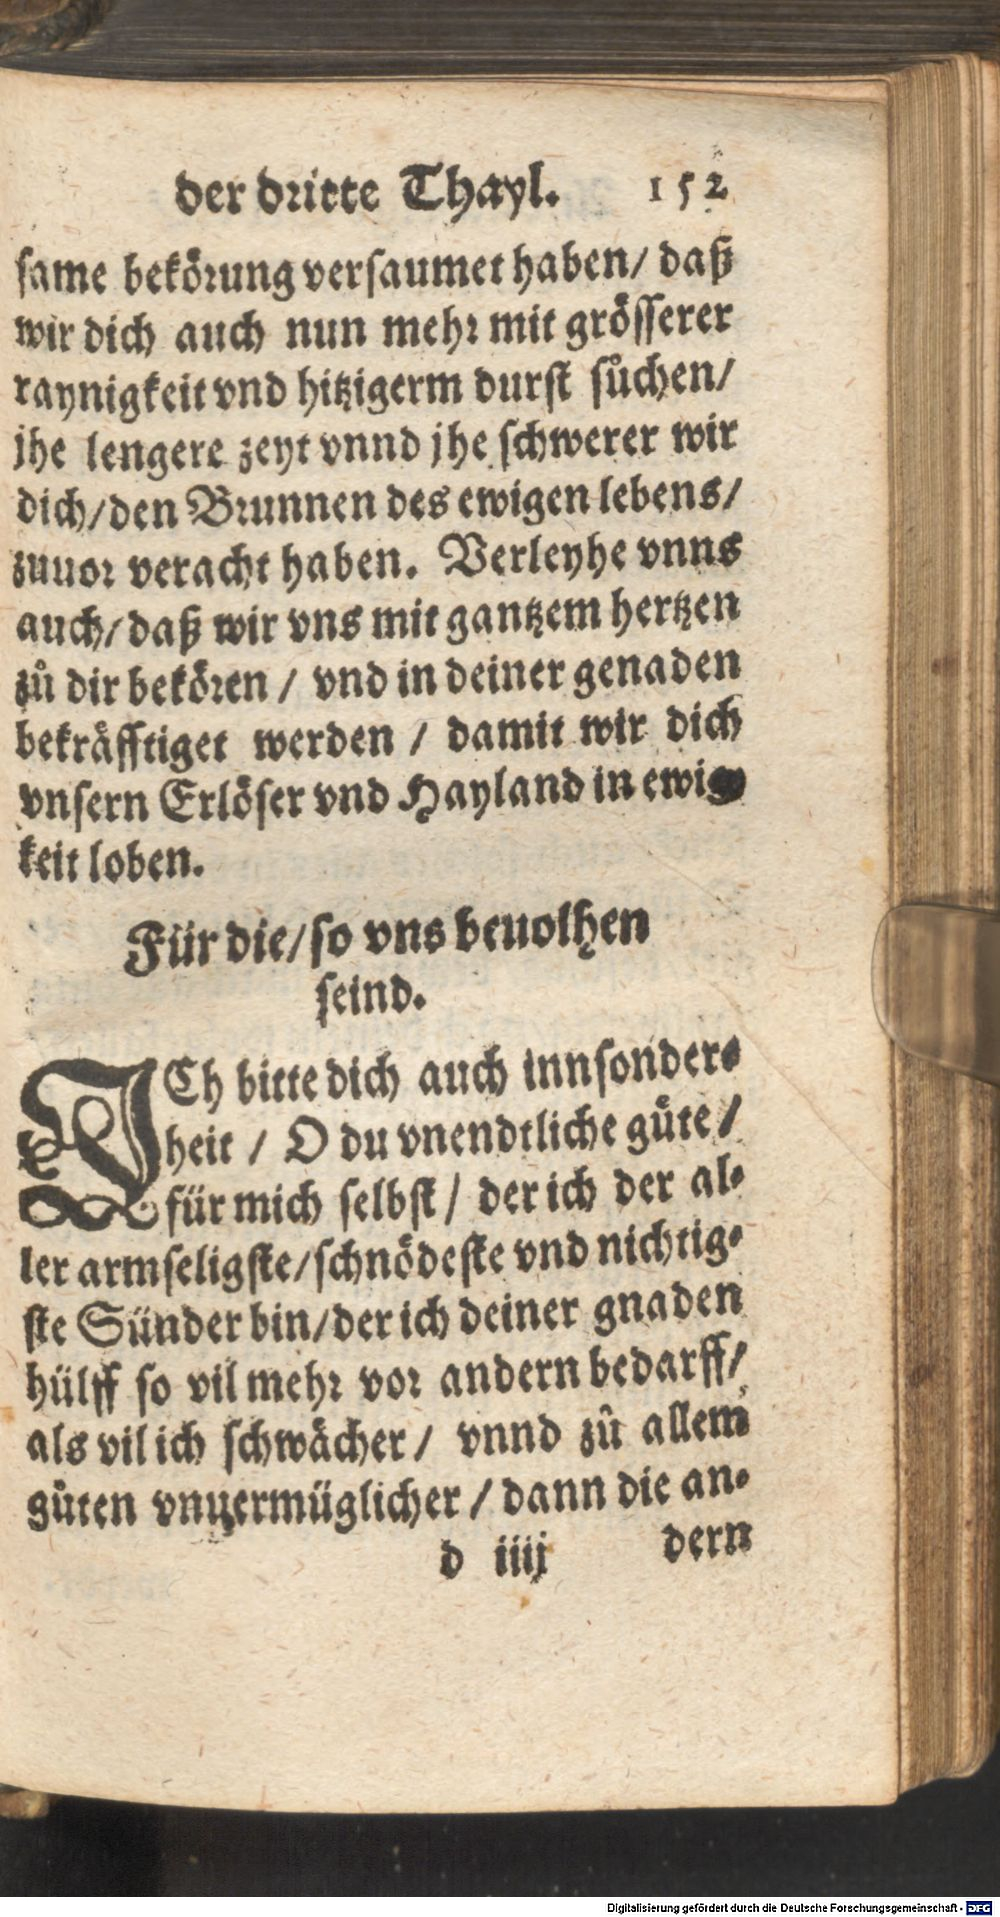 der dritte Thayl. 152
same bekörung versaumet haben/ daß
wir dich auch nun mehr mit grösserer
raynigkeit vnd hitzigerm durst sůchen/
jhe lengere zeyt vnnd jhe schwerer wir
dich/den Brunnen des ewigen lebens/
zuuor veracht haben. Verleyhe vnns
auch/daß wir vns mit gantzem hertzen
zů dir bekören / vnd in deiner genaden
bekräfftiget werden / damit wir dich
vnsern Erlöser vnd Hayland in ewig
keit loben.
Für die/so vns beuolhen
seind.
ICh bitte dich auch innsonder-
heit / O du vnendtliche gůte/
für mich selbst/ der ich der al-
ler armseligste/schnödeste vnd nichtig-
ste Sünder bin/der ich deiner gnaden
hülff so vil mehr vor andern bedarff/
als vil ich schwächer/ vnnd zů allem
gůten vnuermüglicher/dann die an-
d iiij dern
Digitalisierung gefördert durch die Deutsche Forschungsgemeinschaft - DFG